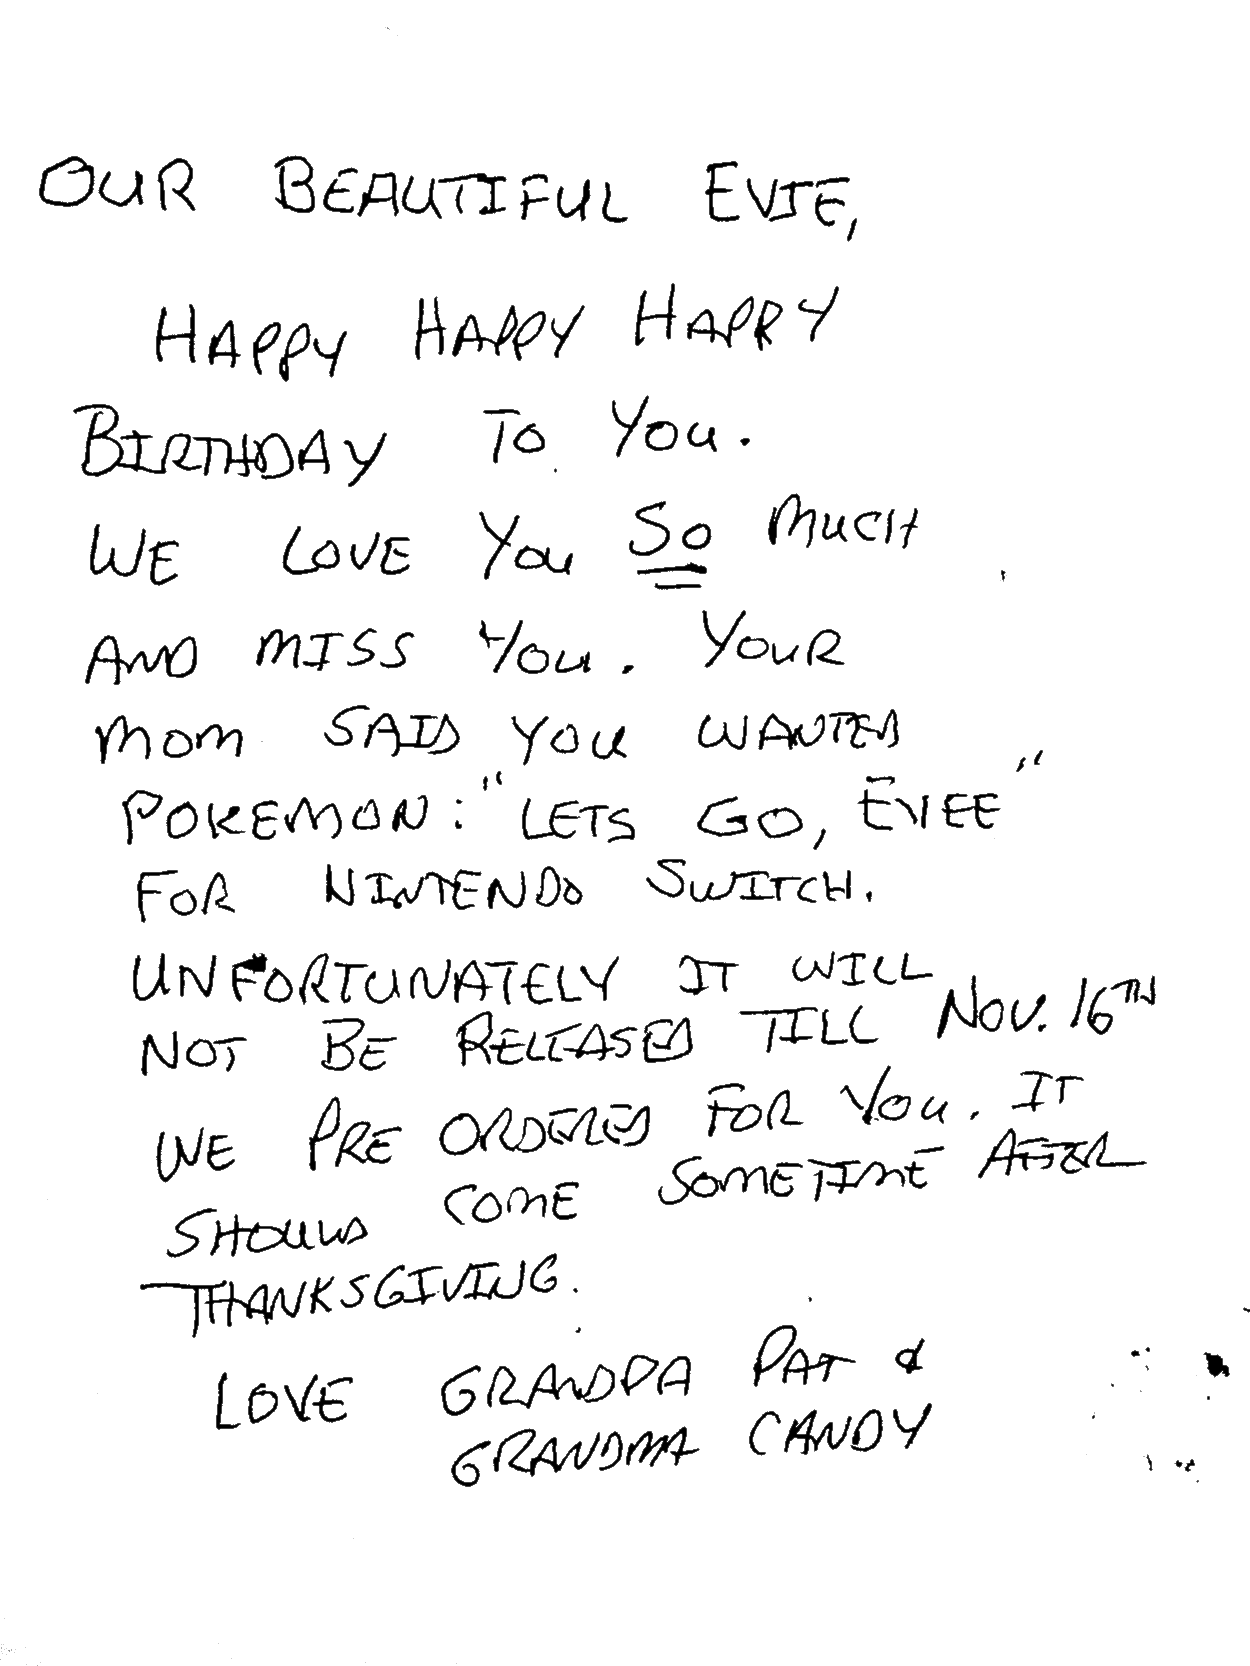 OUR BEAUTIFUL EVIE,
HAPPY HAPPY HAPPY
BIRTHDAY TO YOU.
WE LOVE YOU SO MUCH
AND MISS YOU. YOUR
MOM SAID YOU WANTED
POKEMON: "LETS GO, EVEE"
FOR NINTENDO SWITCH.
UNFORTUNATELY IT WILL
NOT BE RELEASED TILL NOV. 16TH
WE PRE ORDERED FOR YOU. IT
SHOULD COME SOMETIME AFTER
THANKSGIVING.
LOVE GRANDPA PAT &
GRANDMA CANDY